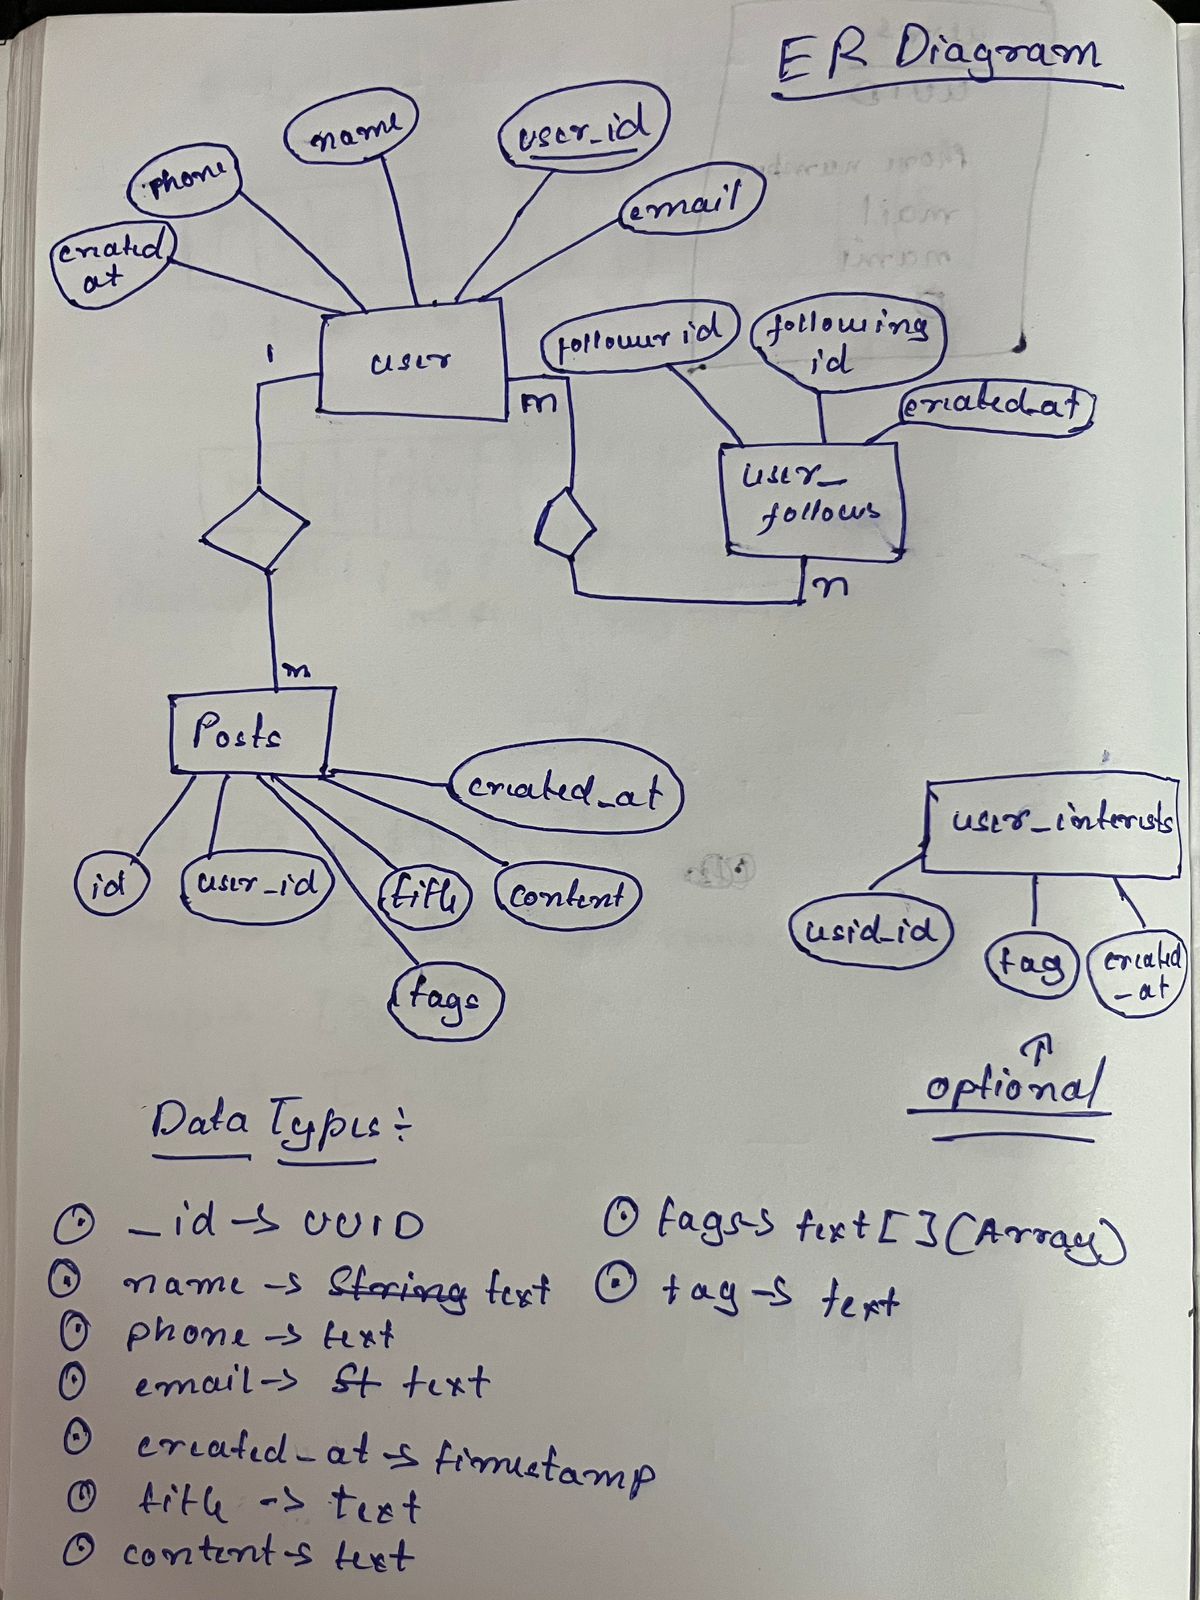 ER Diagram
name
user_id
phone
email
created
at
user
1
m
follower id
following
id
created_at
user_
follows
n
m
Posts
created_at
id
user_id
title
content
tags
user_interests
usid_id
tag
created
_at
optional
Data Types ÷
_id → UUID
name → String text
phone → text
email → St text
created_at → timestamp
title → text
content → text
tags → text [ ] (Array)
tag → text